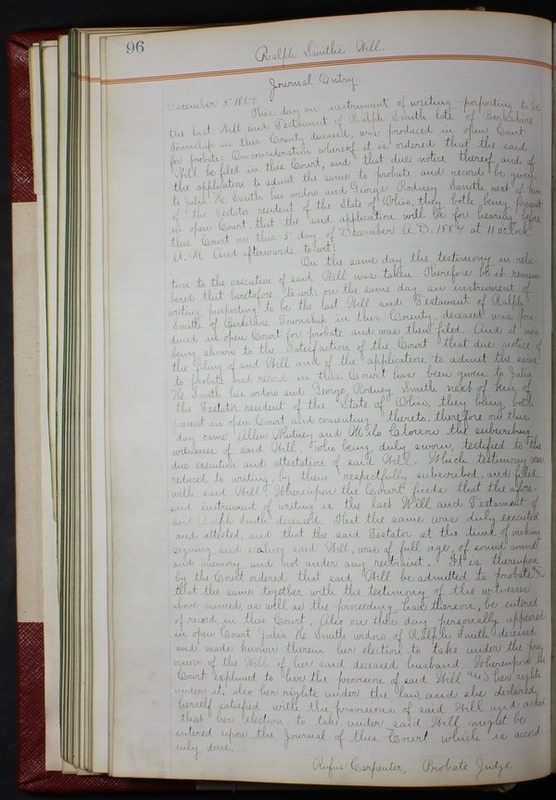 96
Ralph Smith's Will
Journal Entry.
December 5" 1884.
This day an instrument of writing porporting to be
the last Will and Testament of Ralph Smith late of Berkshire
Township in this County deceased, was produced in open Court
for probate; On consideration whereof it is ordered that the said
Will be filed in this Court, and that due notice thereof and of
the application to admit the same to probate and record be given
to Julia H. Smith his widow and George Rodney Smith next of kin
of the Testator resident of the State of Ohio, they both being present
in open Court that the said application will be for hearing before
this Court on this 5" day of December A.D. 1884 at 11 o'clock
A.M. And afterwards to-wit:
On the same day the testimony in rela
tion to the execution of said Will was taken. Therefore be it remem
bered that heretofore to-wit: on the same day an instrument of
writing purporting to be the last Will and Testament of Ralph
Smith of Berkshire Township in this County deceased was pro
duced in open Court for probate and was then filed. And it now
being shown to the Satisfaction of the Court that due notice of
the filing of said Will and of the application to admit the same
to probate and record in this Court has been given to Julia
H. Smith his widow and George Rodney Smith next of kin of
the Testator resident of the State of Ohio, they being both
present in open Court and consenting thereto, therefore on this
day came Allen Whitney and Milo Closson the subscribing
witnesses of said Will, who being duly sworn, testified to the
due execution and attestation of said Will. Which testimony was
reduced to writing, by them respectfully subscribed, and filed
with said Will. Whereupon the Court finds that the afore-
said instrument of writing is the last Will and Testament of
said Ralph Smith deceased. That the same was duly executed
and attested, and that the said Testator at the time of making
signing and sealing said Will, was of full age, of sound mind
and memory and not under any restraint. It is thereupon
by the Court ordered that said Will be admitted to probate and
that the same together with the testimony of the witnesses
above named, as well as the proceeding had thereon, be entered
of record, in this Court. Also on this day personally appeared
in open Court Julia H. Smith widow of Ralph Smith deceased
and made known therein her election to take under the pro
vision of the Will of her said deceased husband. Whereupon the
Court explained to her the provision of said Will and her rights
under it, also her rights under the law, and she declared
herself satisfied with the provisions of said Will and asked
that her election to take under said Will might be
entered upon the Journal of this Court which is accord
ingly done.
Rufus Carpenter, Probate Judge.